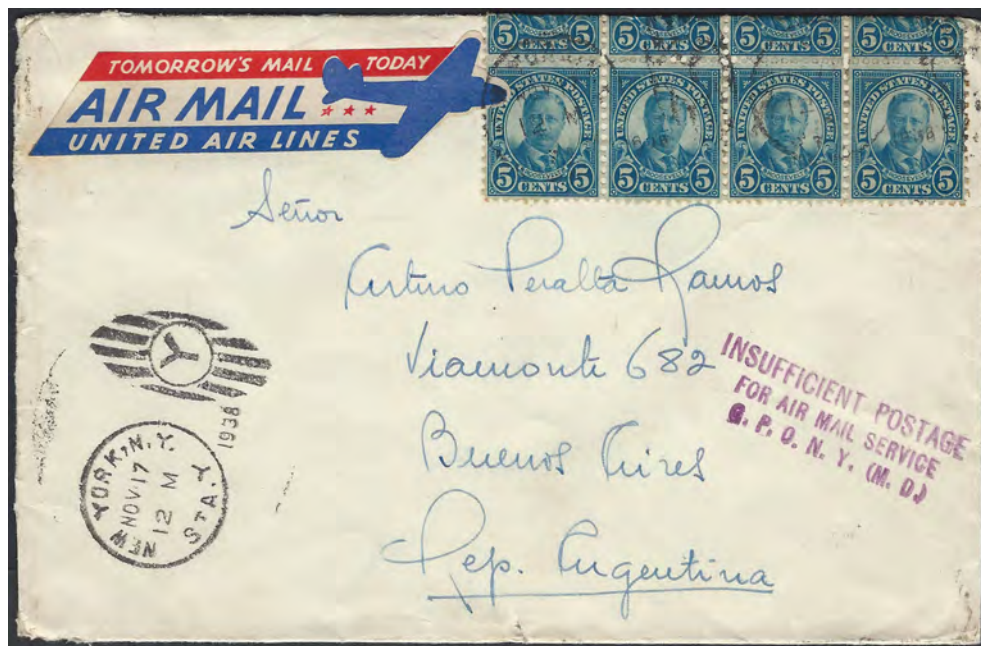 TOMORROW'S MAIL TODAY
AIR MAIL
UNITED AIR LINES
5 CENTS 5
5 CENTS 5
5 CENTS 5
5 CENTS 5
UNITED STATES POSTAGE
ROOSEVELT
5 CENTS 5
UNITED STATES POSTAGE
ROOSEVELT
5 CENTS 5
UNITED STATES POSTAGE
ROOSEVELT
5 CENTS 5
UNITED STATES POSTAGE
ROOSEVELT
5 CENTS 5
Señor
Arturo Peralta Ramos
Viamonte 682
Buenos Aires
Rep. Argentina
INSUFFICIENT POSTAGE
FOR AIR MAIL SERVICE
G. P. O. N. Y. (M. D.)
Y
1938
NEW YORK, N.Y.
NOV 17
12 M
STA. Y